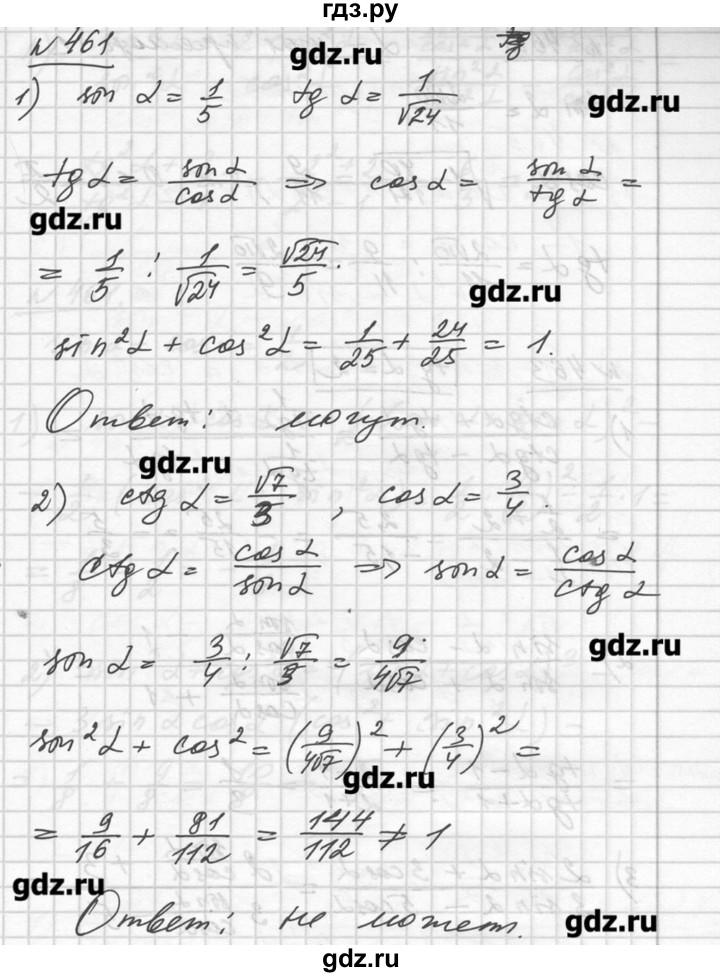 гдз.ру
№ 461
gdz.ru
1) sin α = 1/5 tg α = 1/√24
gdz.ru
tg α = sin α/cos α ⇒ cos α = sin α/tg α =
gdz.ru
= 1/5 : 1/√24 = √24/5.
gdz.ru
sin²α + cos²α = 1/25 + 24/25 = 1.
Ответ: могут.
gdz.ru
2) ctg α = √7/3, cos α = 3/4.
ctg α = cos α/sin α ⇒ sin α = cos α/ctg α
gdz.ru
sin α = 3/4 : √7/3 = 9/4√7
sin²α + cos² = (9/4√7)² + (3/4)² =
gdz.ru
= 9/16 + 81/112 = 144/112 ≠ 1
gdz.ru
Ответ: не может.
gdz.ru
gdz.ru